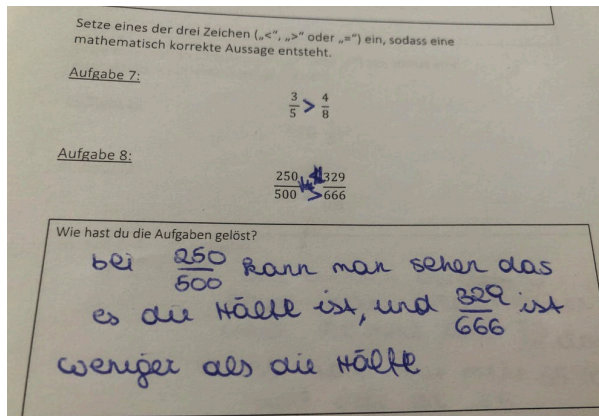 Setze eines der drei Zeichen („<“, „>“ oder „=“) ein, sodass eine
mathematisch korrekte Aussage entsteht.
Aufgabe 7:
3/5 > 4/8
Aufgabe 8:
250/500 > 329/666
Wie hast du die Aufgaben gelöst?
bei 250/500 kann man sehen das
es die Hälfte ist, und 329/666 ist
weniger als die Hälfte